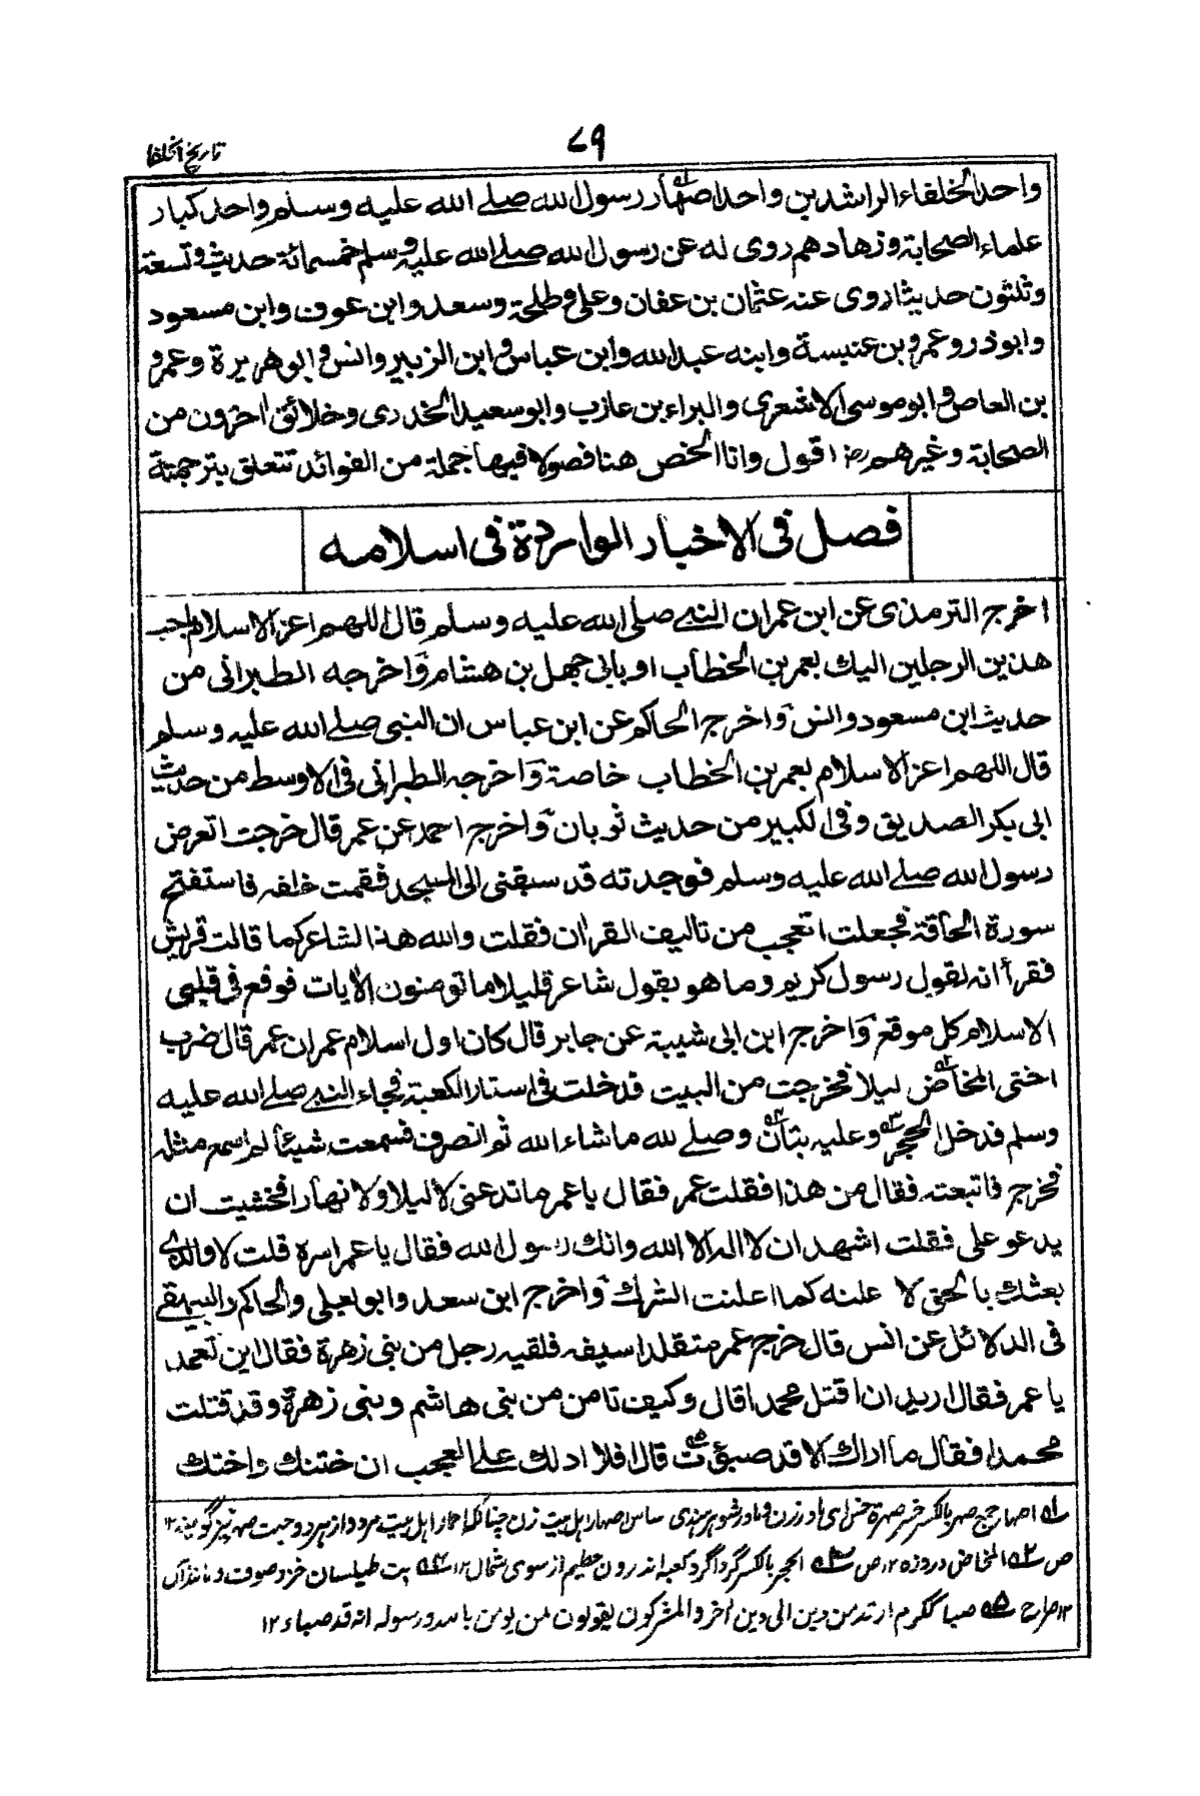 تاریخ الخلفا
٧٩
واحد الخلفاء الراشدین واحد اصهار رسول الله صلے الله علیه وسلم واحد کبار
علماء الصحابة وزهادهم روی له عن رسول الله صلے الله علیه وسلم خمسمائة حدیث وتسعة
وثلثون حدیثا روی عنه عثمان بن عفان وعلی وطلحة وسعد وابن عوف وابن مسعود
وابوذر وعمرو بن عنبسة وابنه عبد الله وابن عباس وابن الزبیر وانس وابو هریرة وعمرو
بن العاص وابو موسی الاشعری والبراء بن عازب وابو سعید الخدری وخلائق اخرون من
الصحابة وغیرهم رض اقول وانا الخص هنا فصولا فیها جملة من الفوائد تتعلق بترجمته
فصل فی الاخبار الواردة فی اسلامه
اخرج الترمذی عن ابن عمر ان النبے صلی الله علیه وسلم قال اللهم اعز الاسلام باحب
هذین الرجلین الیك بعمر بن الخطاب او بابی جهل بن هشام واخرجه الطبرانی من
حدیث ابن مسعود وانس واخرج الحاکم عن ابن عباس ان النبی صلے الله علیه وسلم
قال اللهم اعز الاسلام بعمر بن الخطاب خاصة واخرجه الطبرانی فی الاوسط من حدیث
ابی بکر الصدیق وفی الکبیر من حدیث ثوبان واخرج احمد عن عمر قال خرجت اتعرض
رسول الله صلے الله علیه وسلم فوجدته قد سبقنی الی المسجد فقمت خلفه فاستفتح
سورة الحاقة فجعلت اتعجب من تالیف القران فقلت والله هذا الشاعر کما قالت قریش
فقرأ انه لقول رسول کریم وما هو بقول شاعر قلیلا ما تومنون الایات فوقع فی قلبی
الاسلام کل موقع واخرج ابن ابی شیبة عن جابر قال کان اول اسلام عمر ان عمر قال ضرب
اختی المخاض لیلا فخرجت من البیت فدخلت فی استار الکعبة فجاء النبے صلے الله علیه
وسلم فدخل الحجر وعلیه بتان وصلے لله ما شاء الله ثم انصرف فسمعت شیئا لم اسمع مثله
فخرج فاتبعته فقال من هذا فقلت عمر فقال یا عمر ما تدعنی لا لیلا ولا نهارا فخشیت ان
یدعو علی فقلت اشهد ان لا اله الا الله وانك رسول الله فقال یا عمر اسره قلت لا والذی
بعثك بالحق لا علنه کما اعلنت الشرك واخرج ابن سعد وابو یعلی والحاکم والبیهقے
فی الدلائل عن انس قال خرج عمر متقلدا سیفه فلقیه رجل من بنی زهرة فقال این تعمد
یا عمر فقال ارید ان اقتل محمدا قال وکیف تامن من بنی هاشم وبنی زهرة وقد قتلت
محمدا فقال ما اراك الا قد صبؤت قال افلا ادلك علے العجب ان ختنك واختك
له اصهار جمع صهر بالکسر خسر صهرة خسرای مادر زن ومادر شوهر سندی ساس اصهار اهل بیت زن احمار اهل بیت مرد واز هر دو جهت صهر نیز گویند ۱۲
ص ٢ه المخاض دردزه ۱۲ ص ٣ه الحجر بالکسر گرداگرد کعبه اندرون حطیم از سوی شمال ۱۲ ٤ه بت طیلسان خز وصوف ومانند آن
۱۲ صراح ٥ه صبا ککرم ارتد من دین الی دین آخر والمشرکون یقولون لمن یومن بالله ورسوله انه قد صباء ۱۲